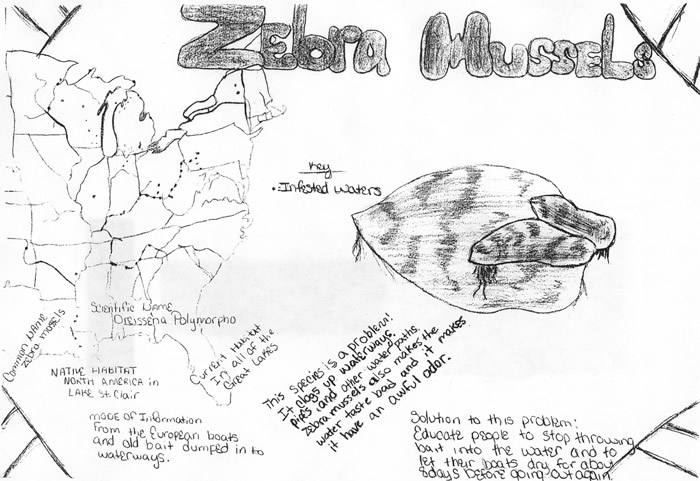 Zebra Mussels
Key
• Infested Waters
Common Name
zebra mussels
Scientific Name
Dreissena Polymorpho
NATIVE HABITAT
NORTH AMERICA in
LAKE St. Clair
Current Habitat
In all of the
Great Lakes
MODE OF Information
From the European boats
and old bait dumped in to
waterways.
This species is a problem!
It clogs up waterways.
pipes, and other water paths.
Zebra mussels also makes the
water taste bad and it makes
it have an awful odor.
Solution to this problem:
Educate people to stop throwing
bait into the water and to
let their boats dry for about
8days before going out again.